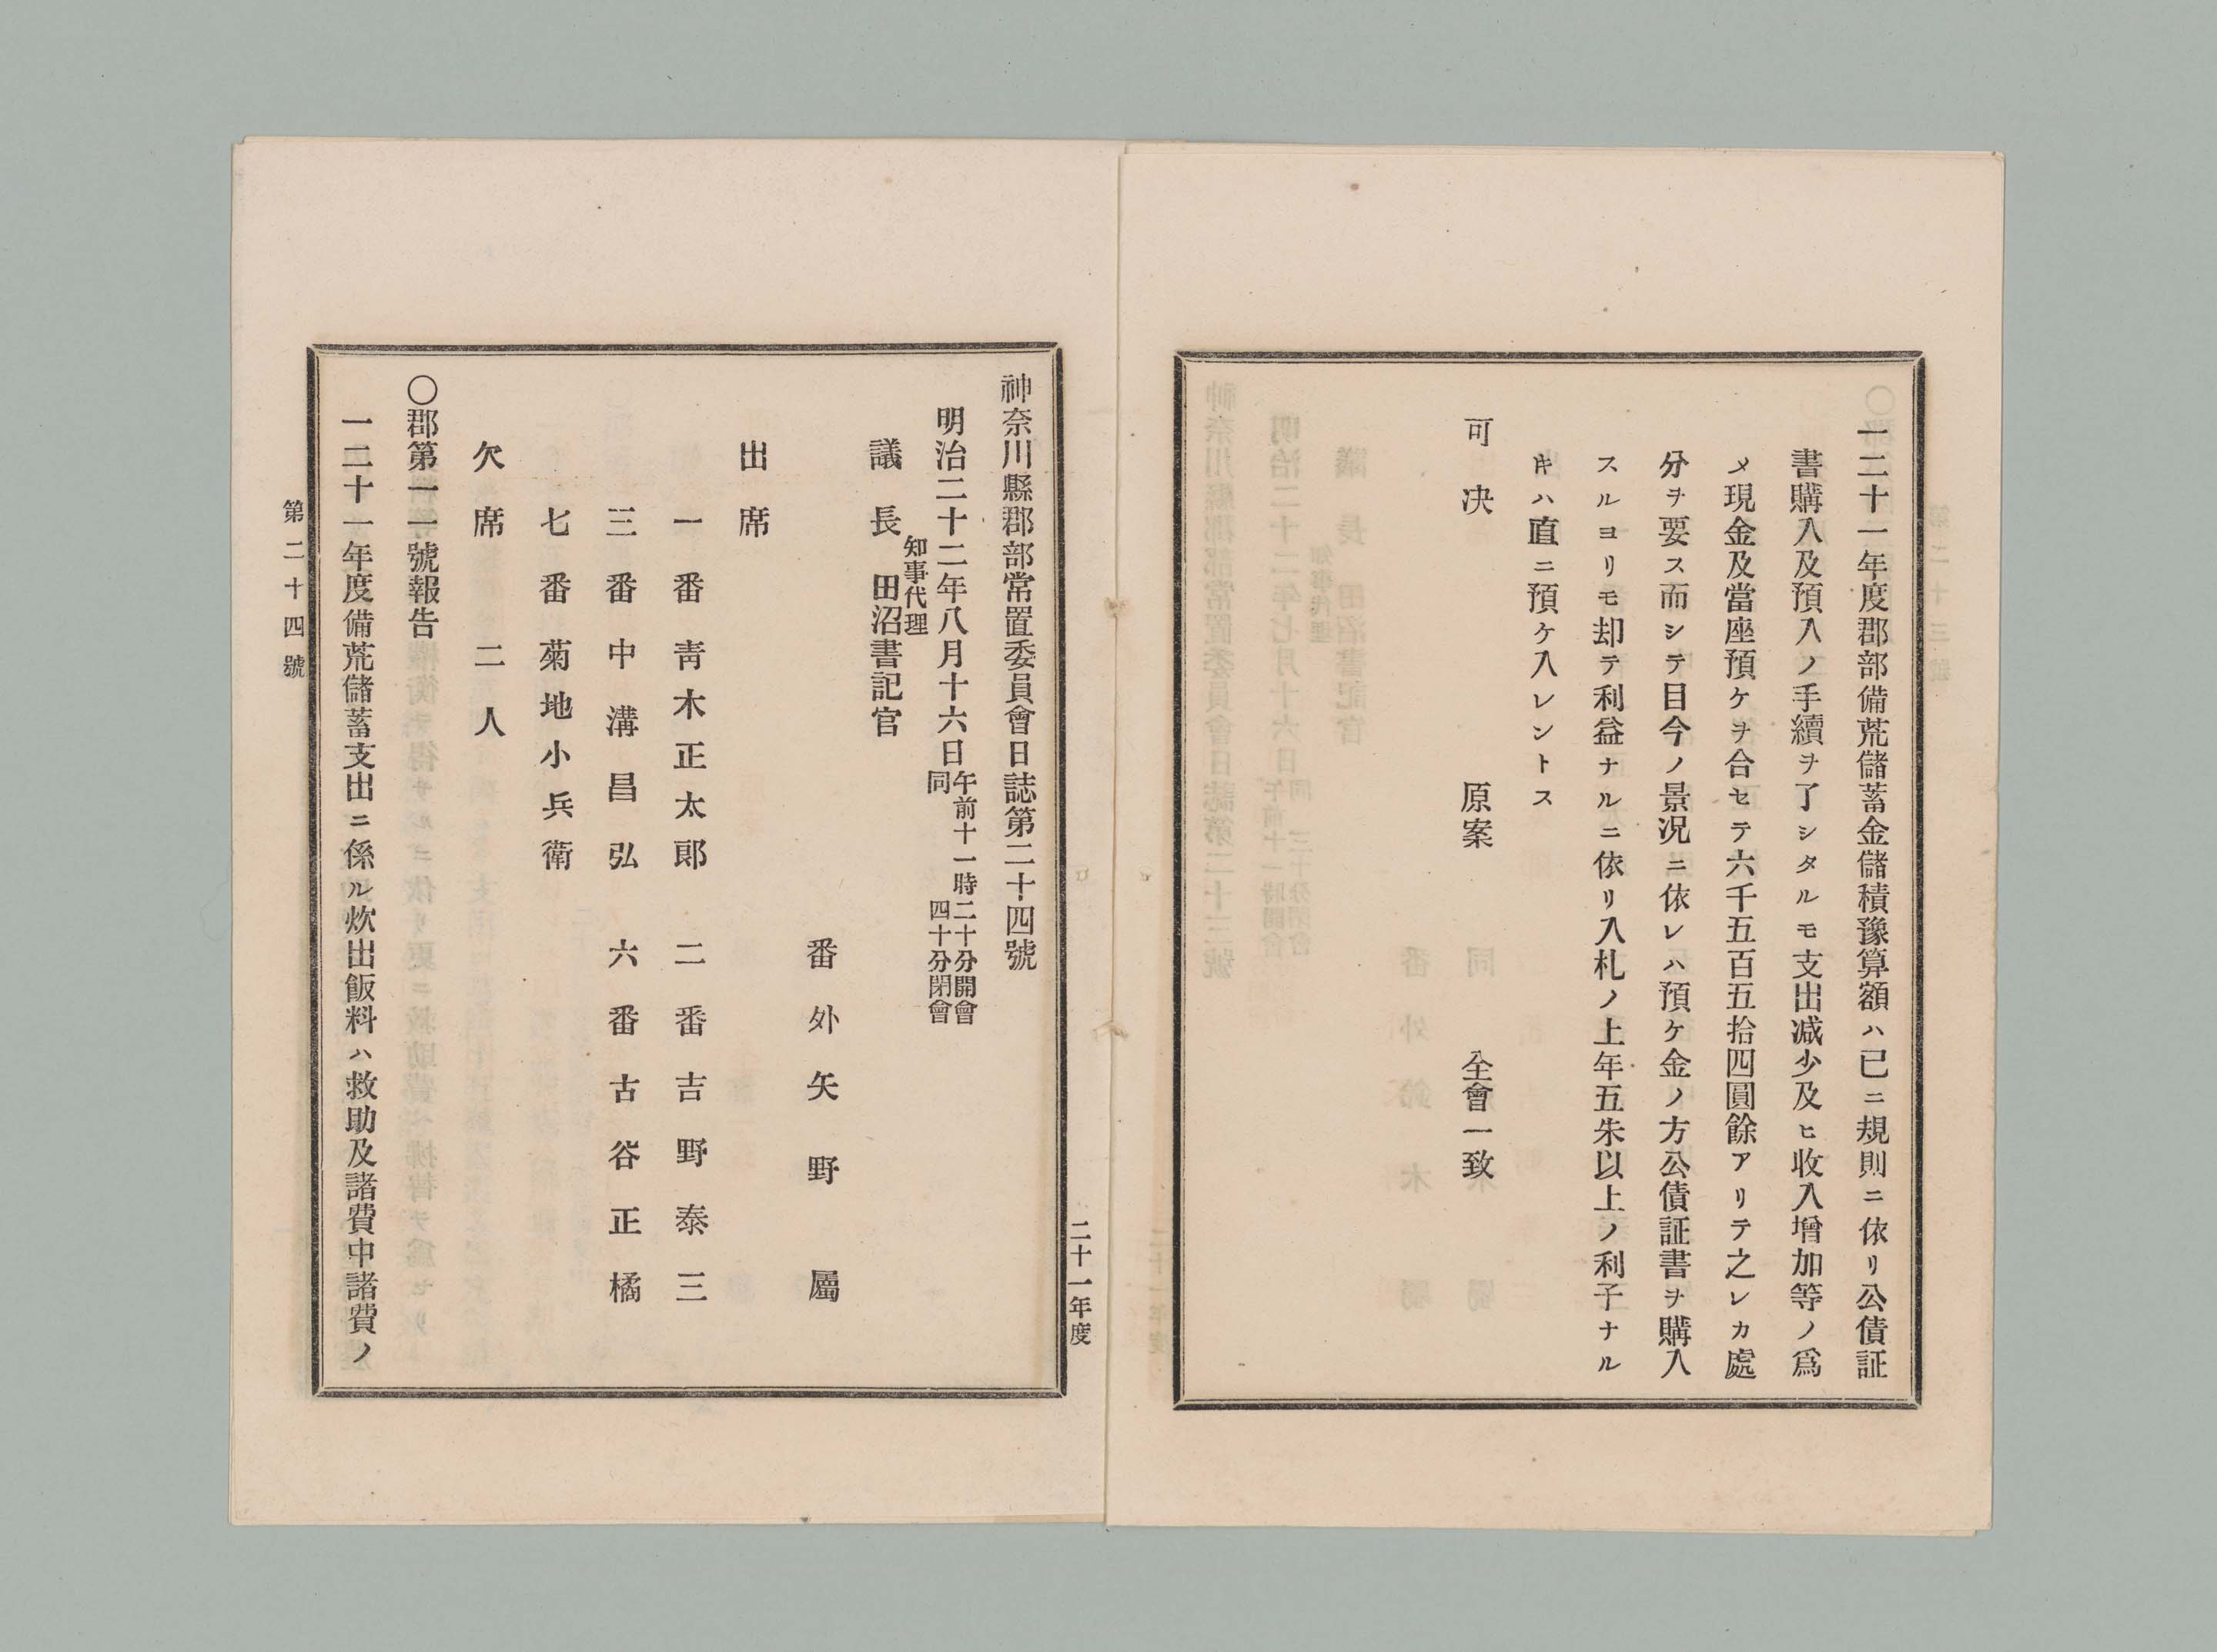 一二十一年度郡部備荒儲蓄金儲積豫算額ハ已ニ規則ニ依リ公債証
書購入及預入ノ手續ヲ了シタルモ支出減少及ヒ收入增加等ノ爲
メ現金及當座預ケヲ合セテ六千五百五拾四圓餘アリテ之レカ處
分ヲ要ス而シテ目今ノ景況ニ依レハ預ケ金ノ方公債証書ヲ購入
スルヨリモ却テ利益ナルニ依リ入札ノ上年五朱以上ノ利子ナル
キハ直ニ預ケ入レントス
可決 原案 全會一致
二十一年度
神奈川縣郡部常置委員會日誌第二十四號
明治二十二年八月十六日午前十一時二十分開會
同 四十分閉會
知事代理
議長 田沼書記官
番外矢野屬
出席
一番靑木正太郞 二番吉野泰三
三番中溝昌弘 六番古谷正橘
七番菊地小兵衛
欠席二人
〇郡第一一號報告
一二十一年度備荒儲蓄支出ニ係ル炊出飯料ハ救助及諸費中諸費ノ
第二十四號